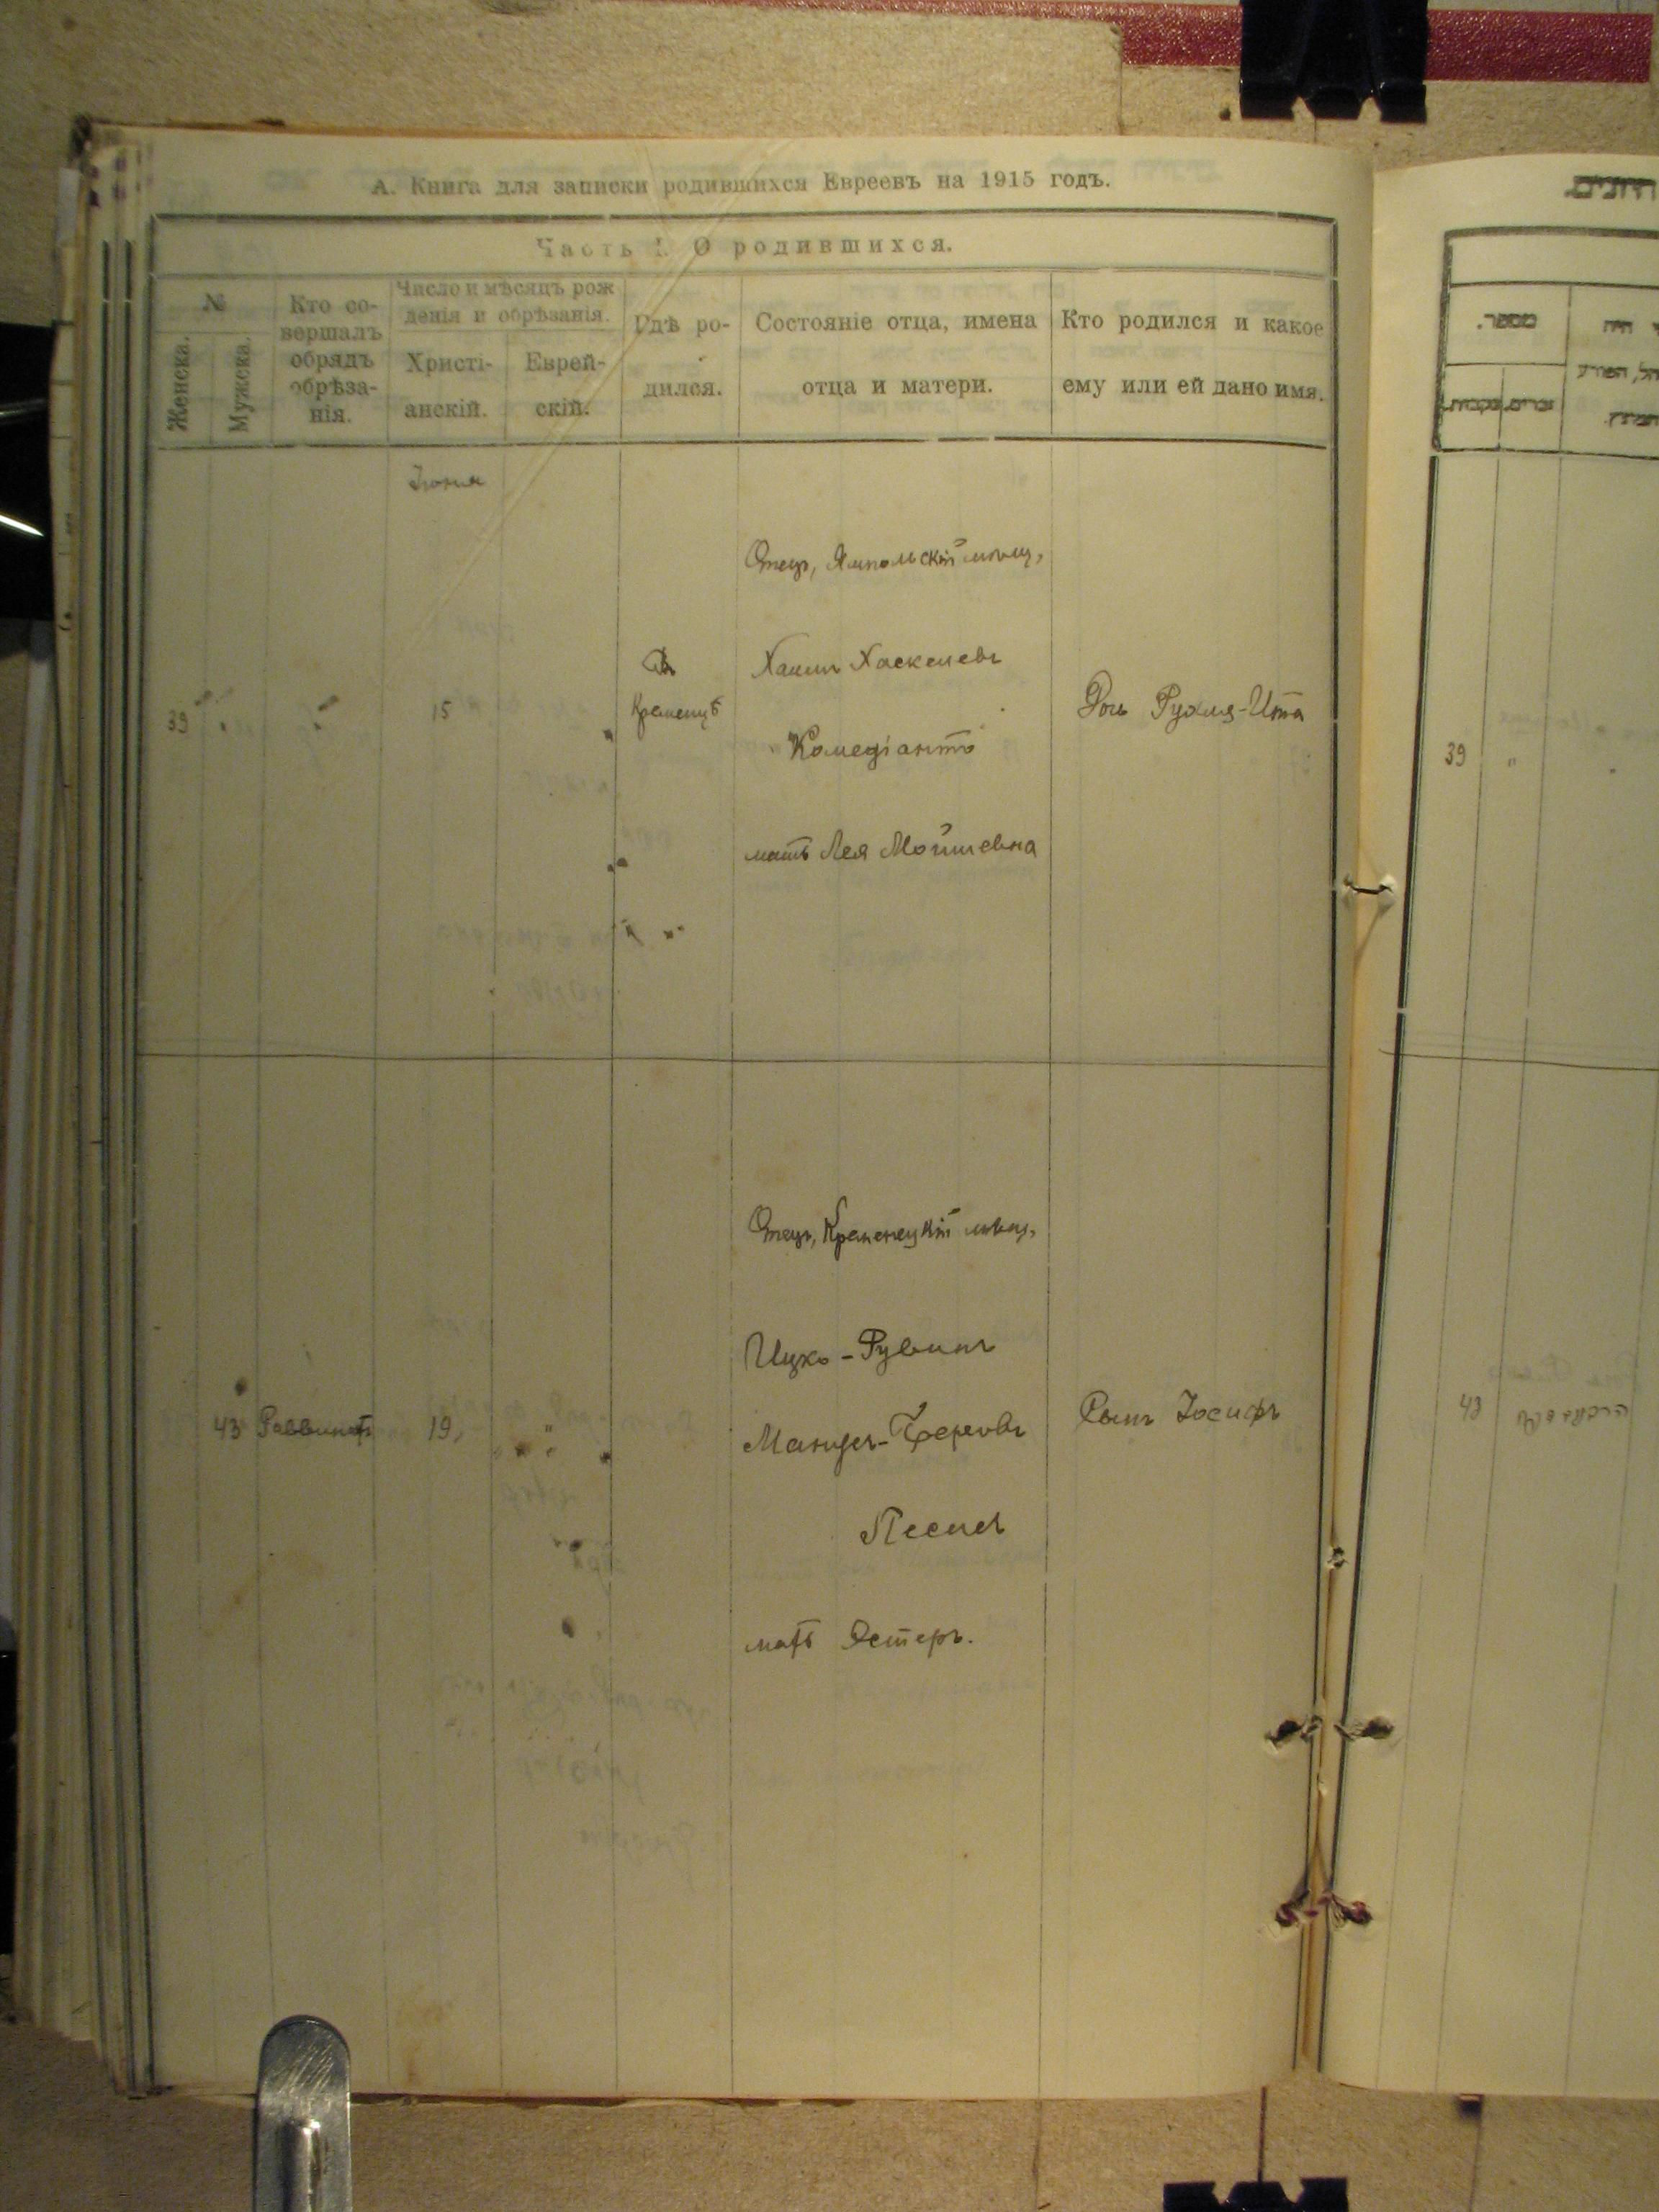 А. Книга для записки родившихся Евреевъ на 1915 годъ.
Часть I. О родившихся.
№
Женска.
Мужска.
Кто со-
вершалъ
обрядъ
обрѣза-
нія.
Число и мѣсяцъ рож
денія и обрѣзанія.
Христі-
анскій.
Еврей-
скій.
Гдѣ ро-
дился.
Состояніе отца, имена
отца и матери.
Кто родился и какое
ему или ей дано имя.
Іюня
39
15
Въ
Кременцѣ
Отецъ, Ямпольскій мѣщ,
Хаимъ Хаскелевъ
Комедіантъ
мать Лея Мойшевна
Дочь Рухля-Ита
43
Раввинатъ
19,
"
Отецъ, Кременецкій мѣщ,
Ицко-Рувинъ
Манусъ-Беровъ
мать Эстеръ.
Сынъ Іосифъ
מספר.
זכרים.
נקבות.
39
"
43